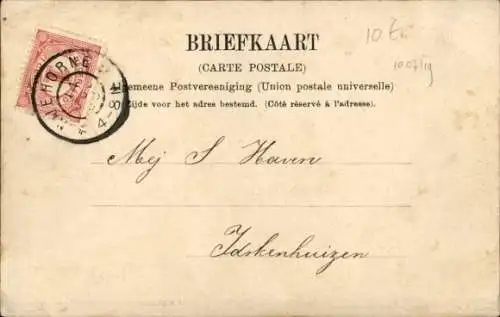 BRIEFKAART
(CARTE POSTALE)
Algemeene Postvereeniging (Union postale universelle)
Zijde voor het adres bestemd. (Côté réservé à l'adresse).
Mej S Haven
Idskenhuizen